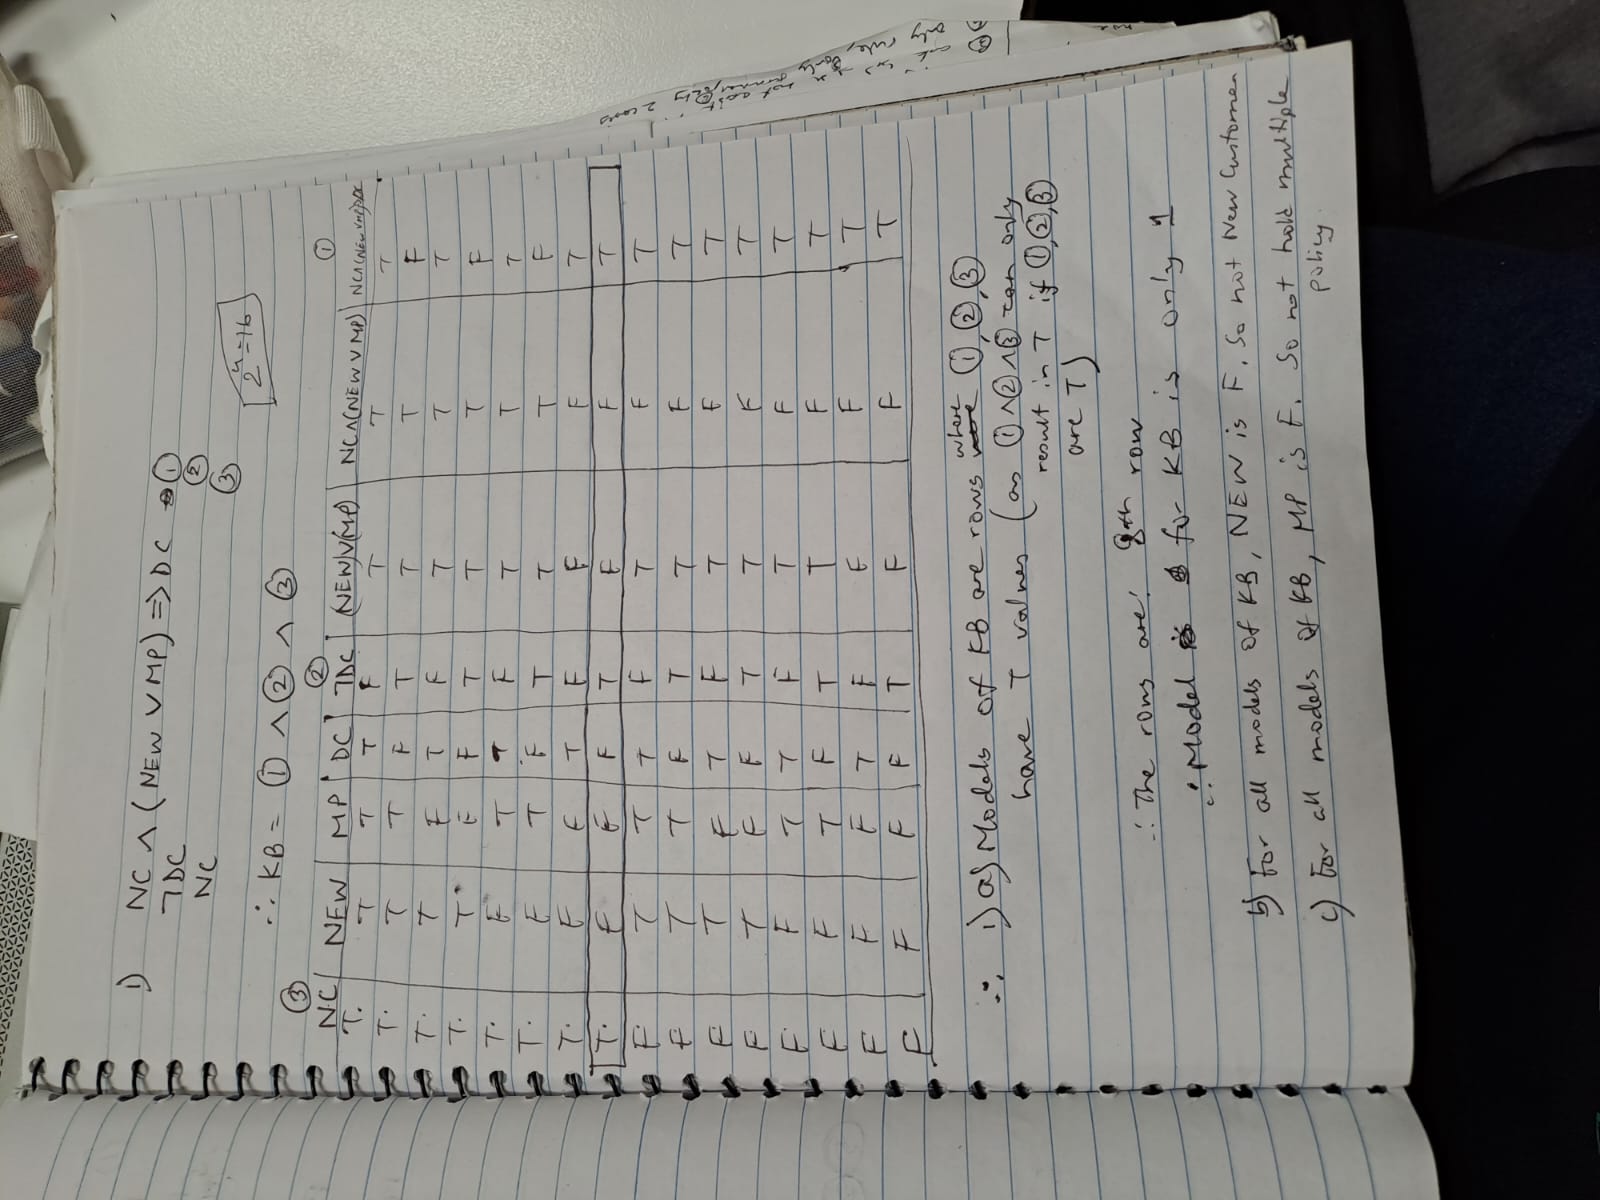 1) NC ∧ (NEW ∨ MP) => DC ①
¬DC ②
NC ③
2⁴=16
∴ KB = ① ∧ ② ∧ ③
③ ② ①
NC | NEW | MP | DC | ¬DC | (NEW)∨(MP) | NC∧(NEW ∨ MP) | NC∧(NEW ∨ MP)=>DC
T. T T T F T T T
T. T T F T T T F
T. T F T F T T T
T. T F F T T T F
T. F T T F T T T
T. F T F T T T F
T. F F T F F F T
T. F F F T F F T
F T T T F T F T
F T T F T T F T
F T F T F T F T
F T F F T T F T
F F T T F T F T
F F T F T T F T
F F F T F F F T
F F F F T F F T
∴ 1) a) Models of KB are rows where ①,②,③
have T values (as ①∧②∧③ can only
result in T if ①,②,③
are T)
∴ The rows are: 8th row
∴ Model for KB is only 1
b) For all models of KB, NEW is F, so not New Customer
c) For all models of KB, MP is F. So not hold multiple
policy.